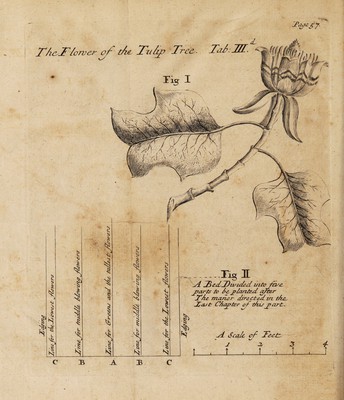 Page 57.
The Flower of the Tulip Tree. Tab. III.d
Fig I
Edging
Line for the Lowest flowers
Line for middle blowing flowers
Line for Greens and the tallest flowers
Line for middle blowing flowers
Line for the Lowest flowers
Edging
C B A B C
Fig II
A Bed Divided into five
parts to be planted after
The maner directed in the
Last Chapter of this part.
A Scale of Feet
1 2 3 4